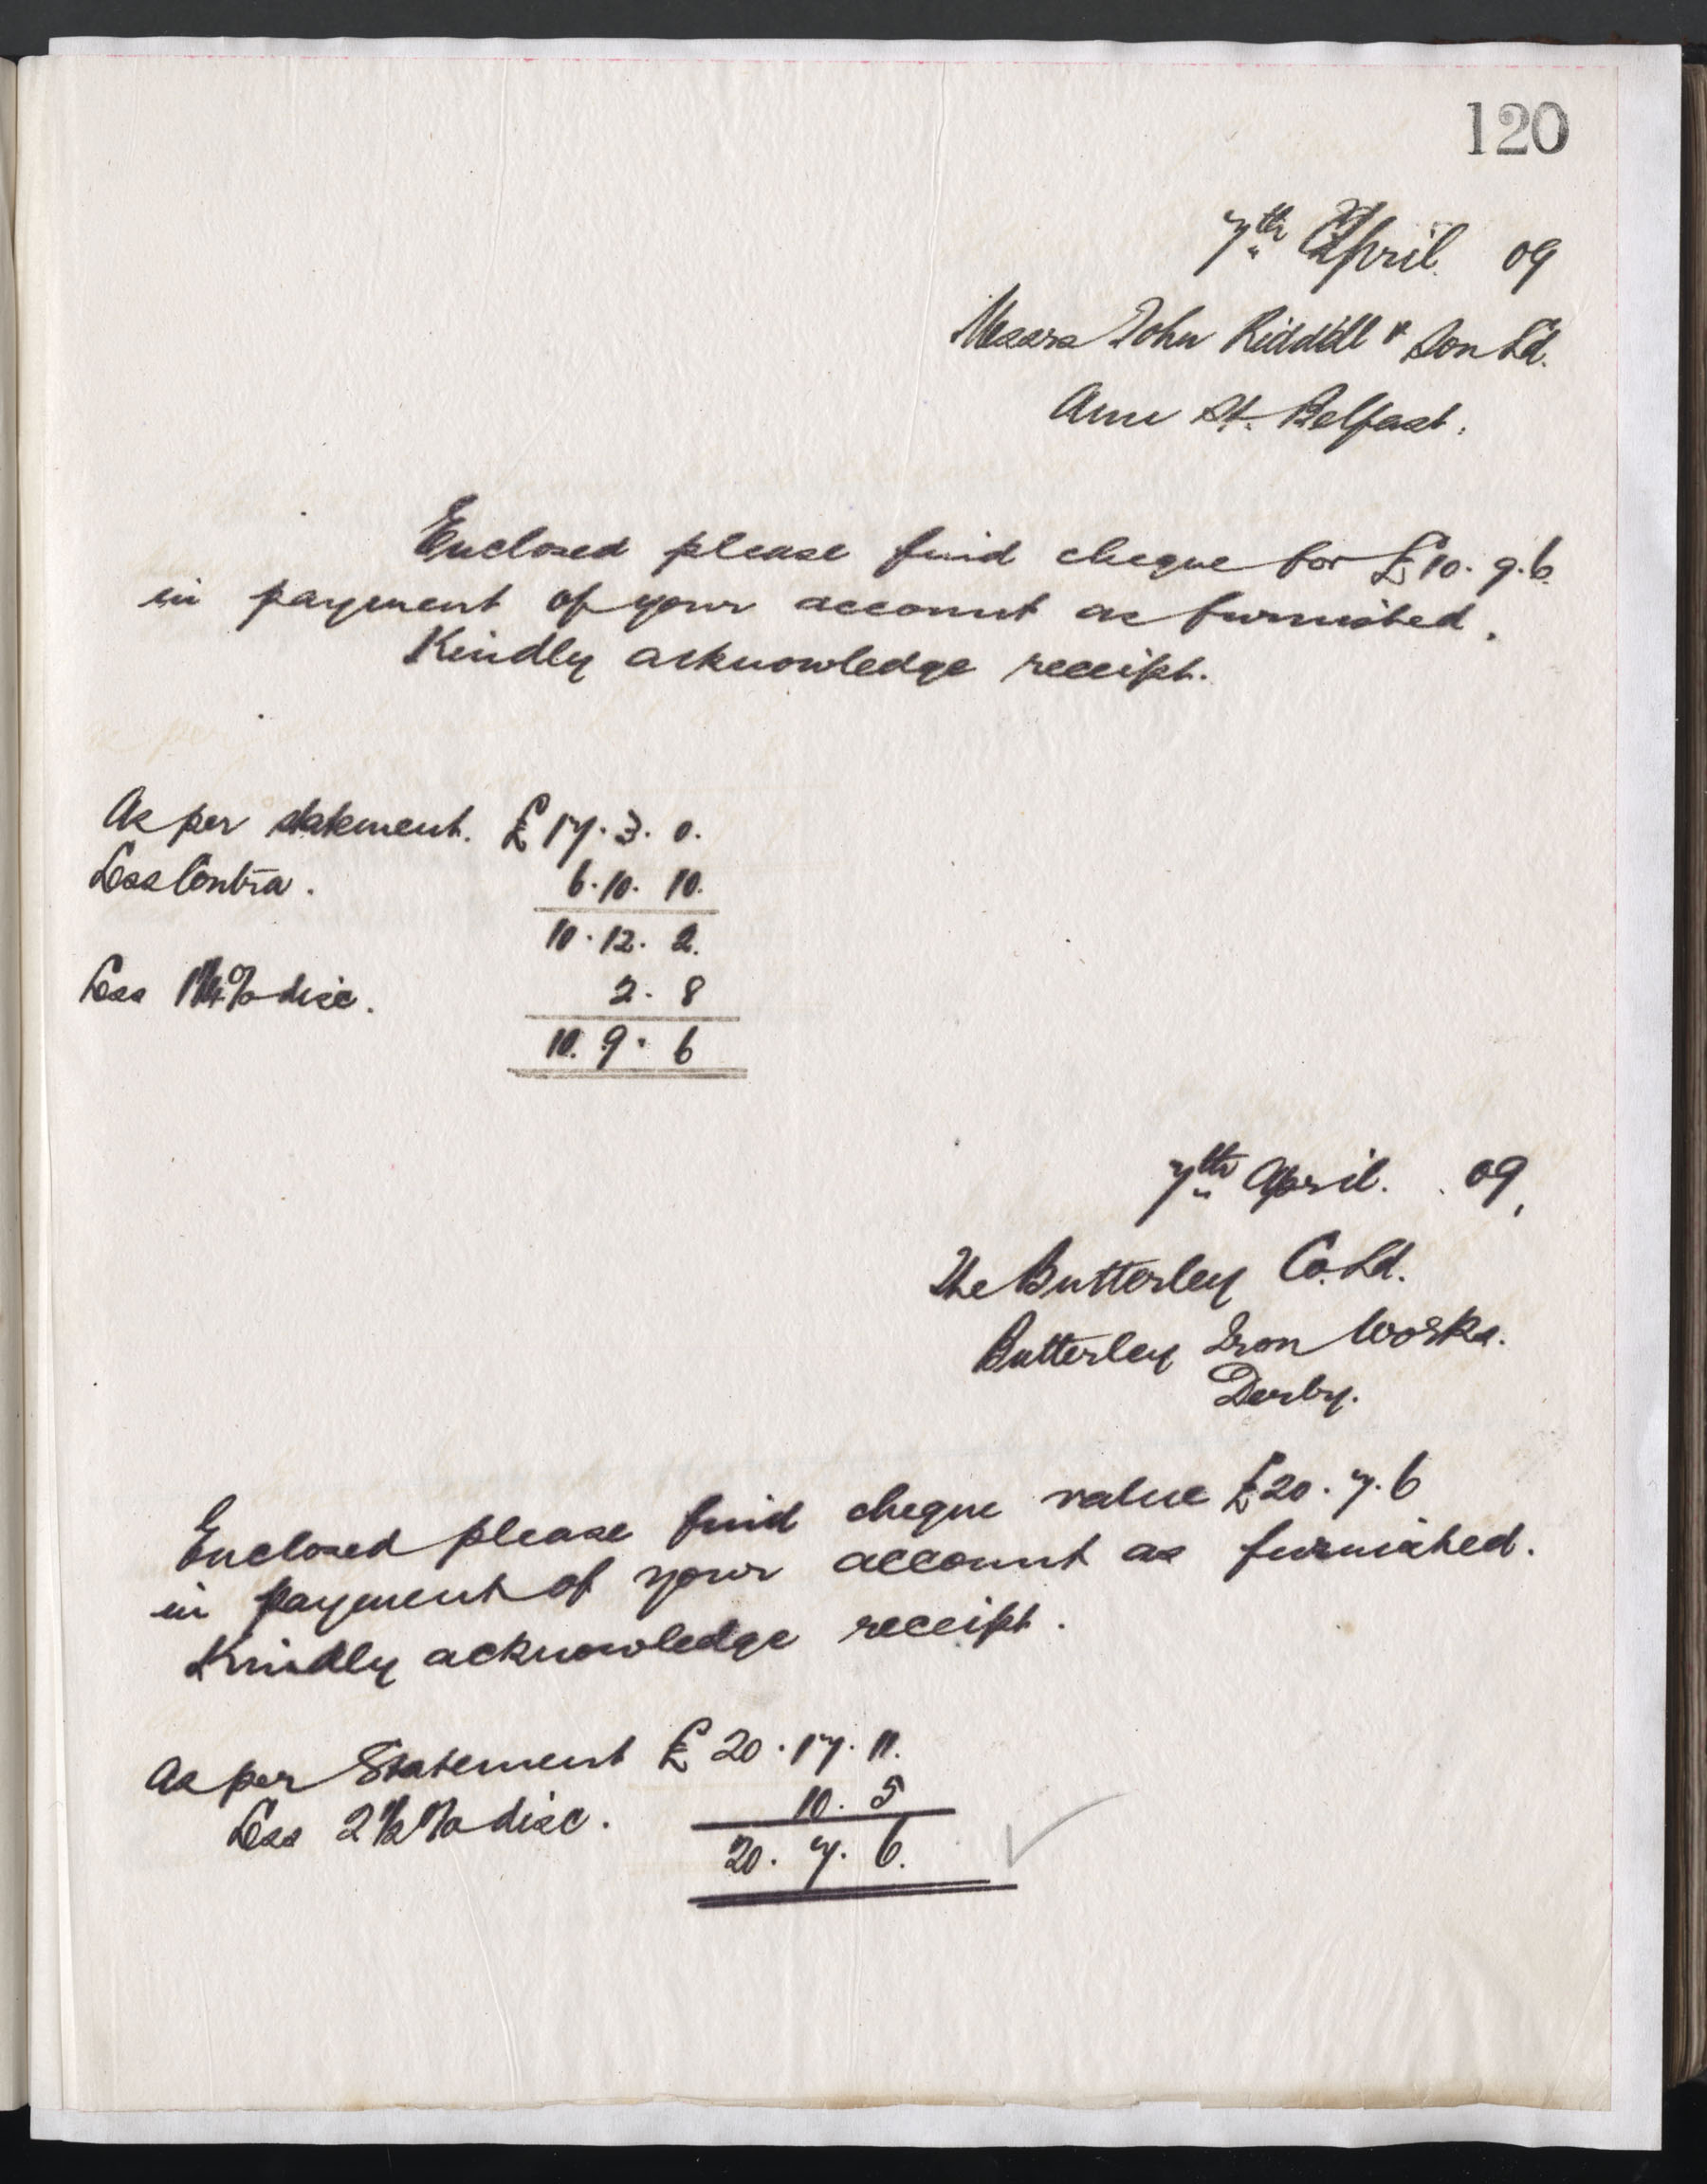 120
7th April 09
Messrs John Riddell & Son Ld.
Ann St. Belfast.
Enclosed please find cheque for £10. 9. 6.
in payment of your account as furnished.
Kindly acknowledge receipt.
As per statement. £17. 3. 0.
Less Contra. 6. 10. 10.
10. 12. 2.
Less 1¼% disc. 2. 8
10. 9. 6
7th April. 09,
The Butterley Co. Ld.
Butterley Iron Works.
Derby.
Enclosed please find cheque value £20. 7. 6
in payment of your account as furnished.
Kindly acknowledge receipt.
As per Statement £20. 17. 11.
Less 2½% disc. 10. 5
20. 7. 6.